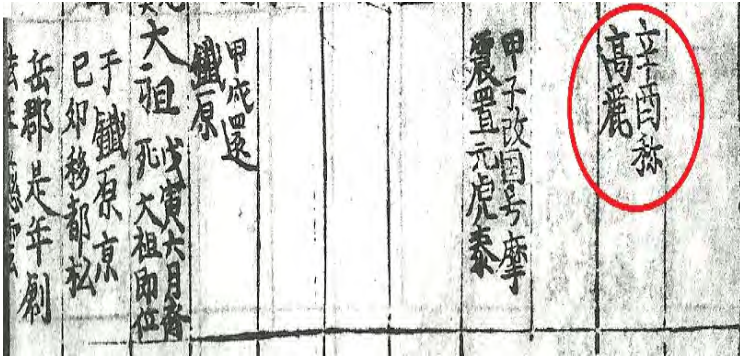 辛酉称
高麗
甲子改囯号摩
震置元虎泰
甲戌還
鐵原
大祖
戊寅六月裔
死大祖即位
于鐵原京
己卯移都松
岳郡是年創